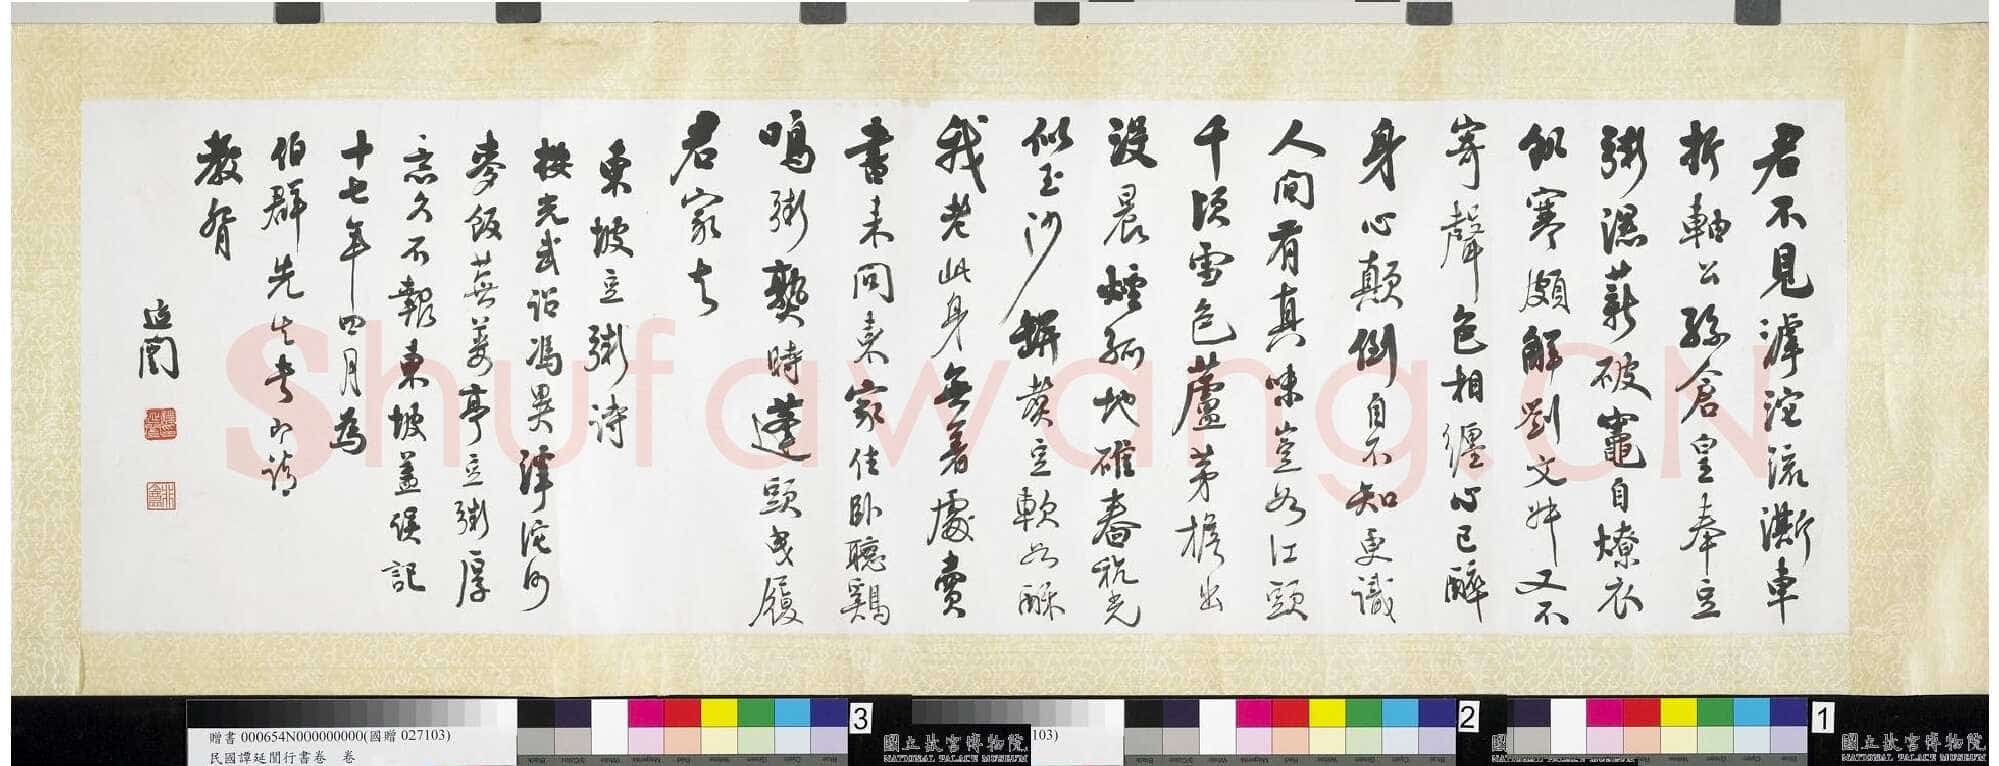 君不見滹沱流澌車
折軸公孫倉皇奉豆
粥濕薪破竈自燎衣
飢寒頗解劉文叔又不
寄聲色相纏心已醉
身心顛倒自不知更識
人間有真味豈如江頭
千頃雪色蘆茅檐出
沒晨煙孤地碓舂秔光
似玉沙缾煮豆軟如酥
我老此身無著處賣
書來問東家住臥聽鷄
鳴粥熟時蓬頭曳履
君家去
東坡豆粥詩
按光武詔馮異滹沱河
麥飯蕪蔞亭豆粥厚
意久不報東坡蓋誤記
十七年四月為
伯群先生書即請
教
延闓
Shufawang.CN
贈書 000654N000000000(國贈 027103)
民國譚延闓行書卷 卷
3
國立故宮博物院
NATIONAL PALACE MUSEUM
103)
2
國
NATIONAL
1
國立故宮博物院
NATIONAL PALACE MUSEUM